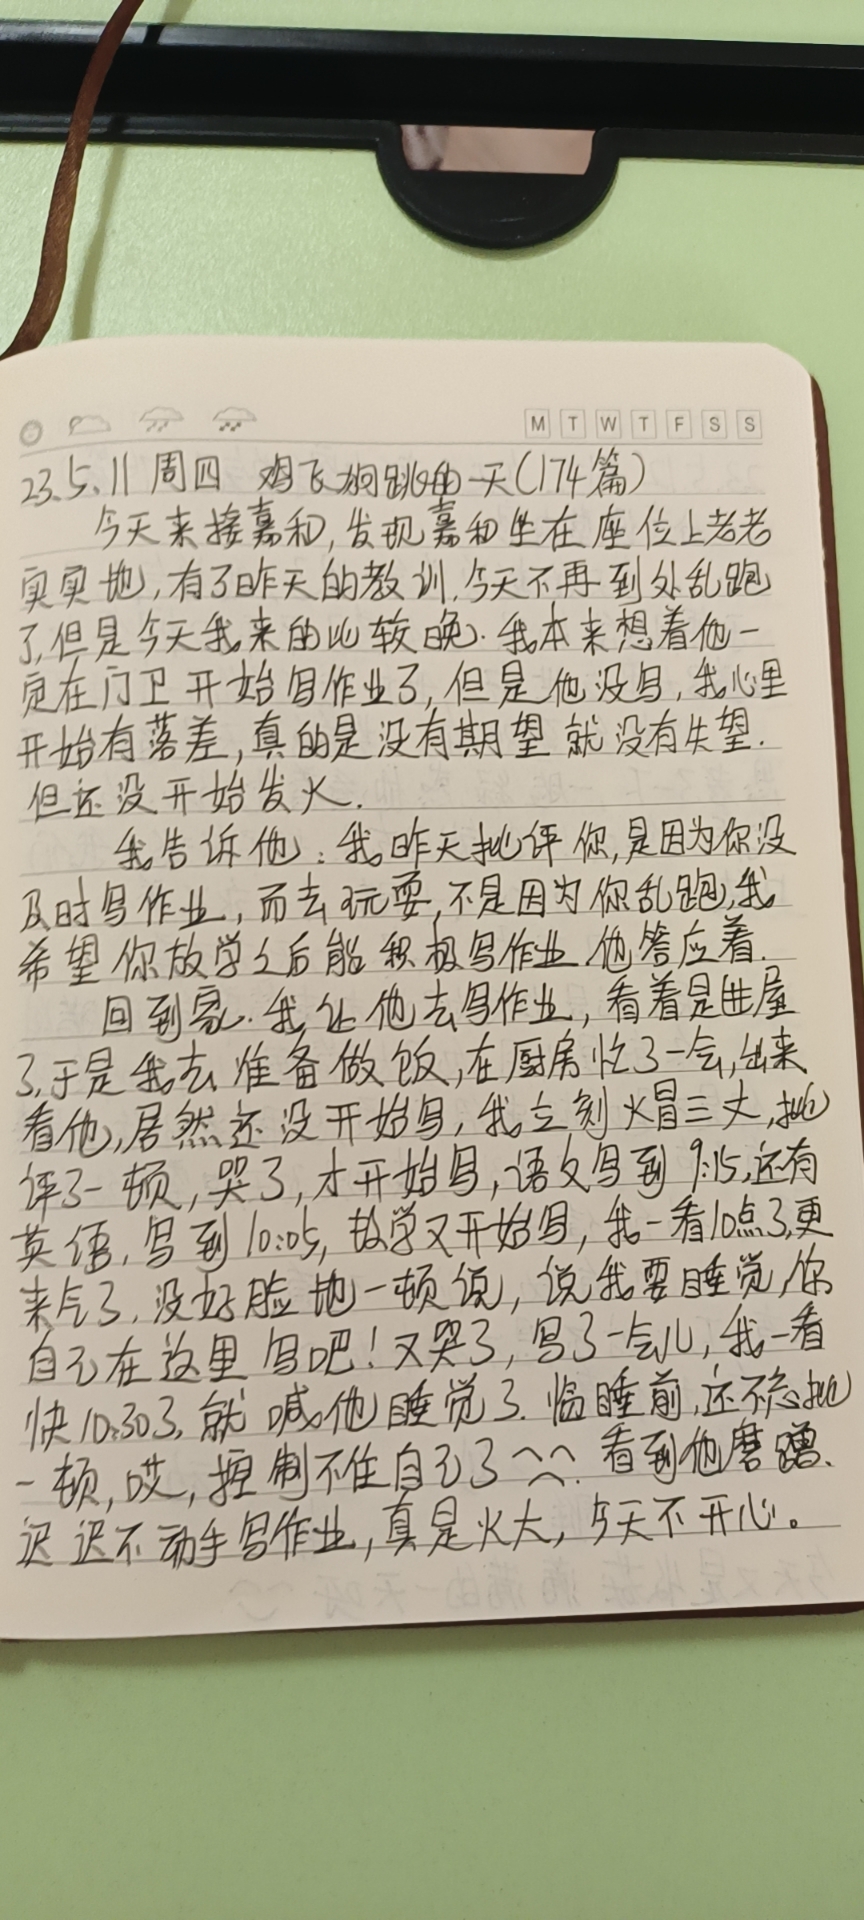 M T W T F S S
23.5.11 周四 鸡飞狗跳的一天(174篇)
今天来接嘉和,发现嘉和坐在座位上老老
实实地,有了昨天的教训.今天不再到外乱跑
了,但是今天我来的比较晚.我本来想着他一
定在门卫开始写作业了,但是他没写,我心里
开始有落差,真的是没有期望就没有失望.
但还没开始发火.
我告诉他:我昨天批评你,是因为你没
及时写作业,而去玩耍,不是因为你乱跑,我
希望你放学之后能积极写作业.他答应着.
回到家.我让他去写作业,看着是进屋
了,于是我去准备做饭,在厨房忙了一会,出来
看他,居然还没开始写,我立刻火冒三丈,批
评了一顿,哭了,才开始写,语文写到9:15,还有
英语,写到10:05,数学又开始写,我一看10点了,更
来气了,没好脸地一顿说,说我要睡觉,你
自己在这里写吧!又哭了,写了一会儿,我一看
快10:30了,就喊他睡觉了.临睡前,还不忘批
一顿,哎,控制不住自己了 看到他磨蹭、
迟迟不动手写作业,真是火大,今天不开心。